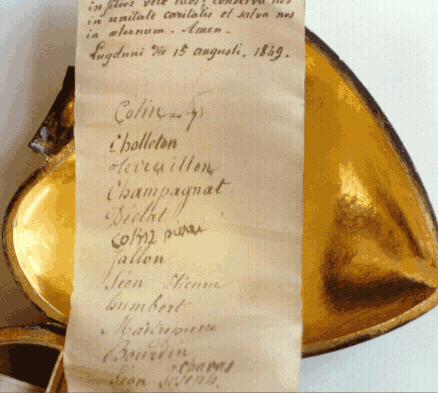 in filios vere tuos: conserva nos
in unitate caritatis et salva nos
in æternum. Amen.
Lugduni die 15 augusti. 1849.
Colin
Cholleton
Champagnat
Déclat
Colin pierre
Jallon
Séon Etienne
humbert
Maîtrepierre
Bourdin
chavas
Séon Joseph.